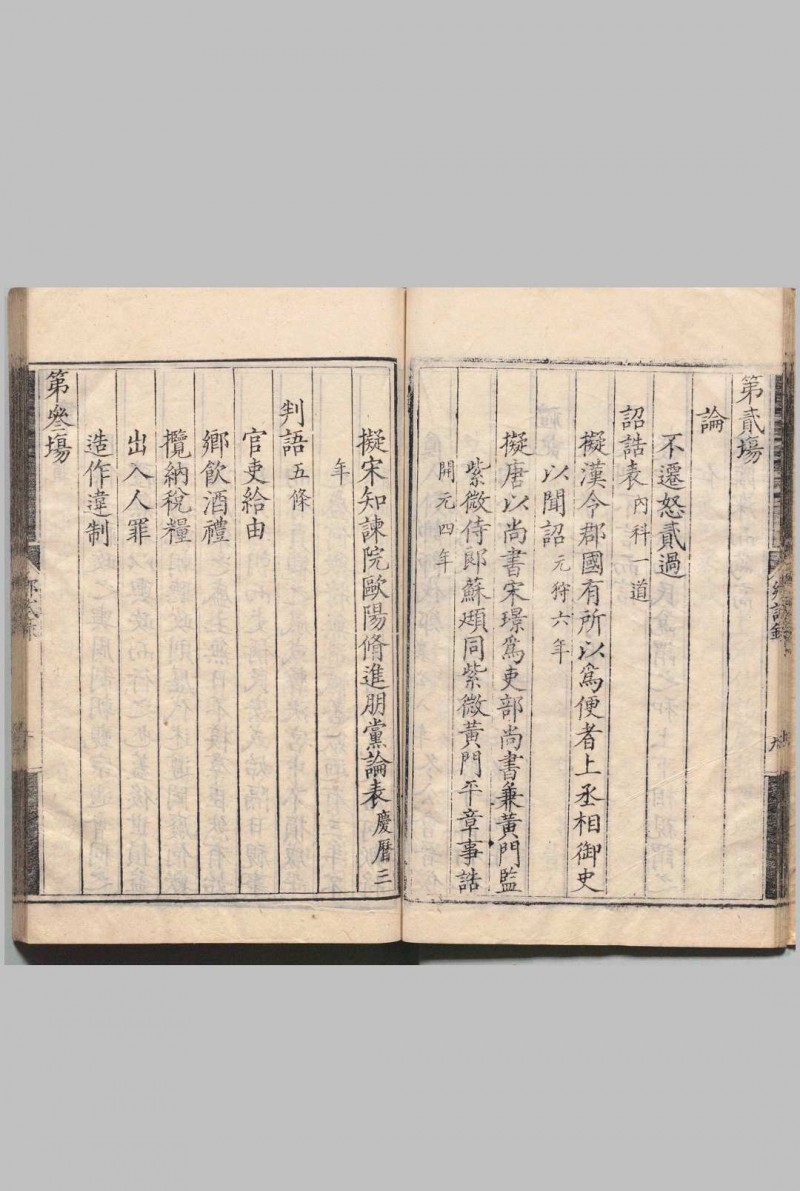 第貳場
論
不遷怒貳過
詔誥表內科一道
擬漢令郡國有所以爲便者上丞相御史
以聞詔元狩六年
擬唐以尚書宋璟爲吏部尚書兼黃門監
紫微侍郎蘇頲同紫微黃門平章事誥
開元四年
擬宋知諫院歐陽脩進朋黨論表慶曆三
年
判語五條
官吏給由
鄉飲酒禮
攬納稅糧
出入人罪
造作違制
第叄場